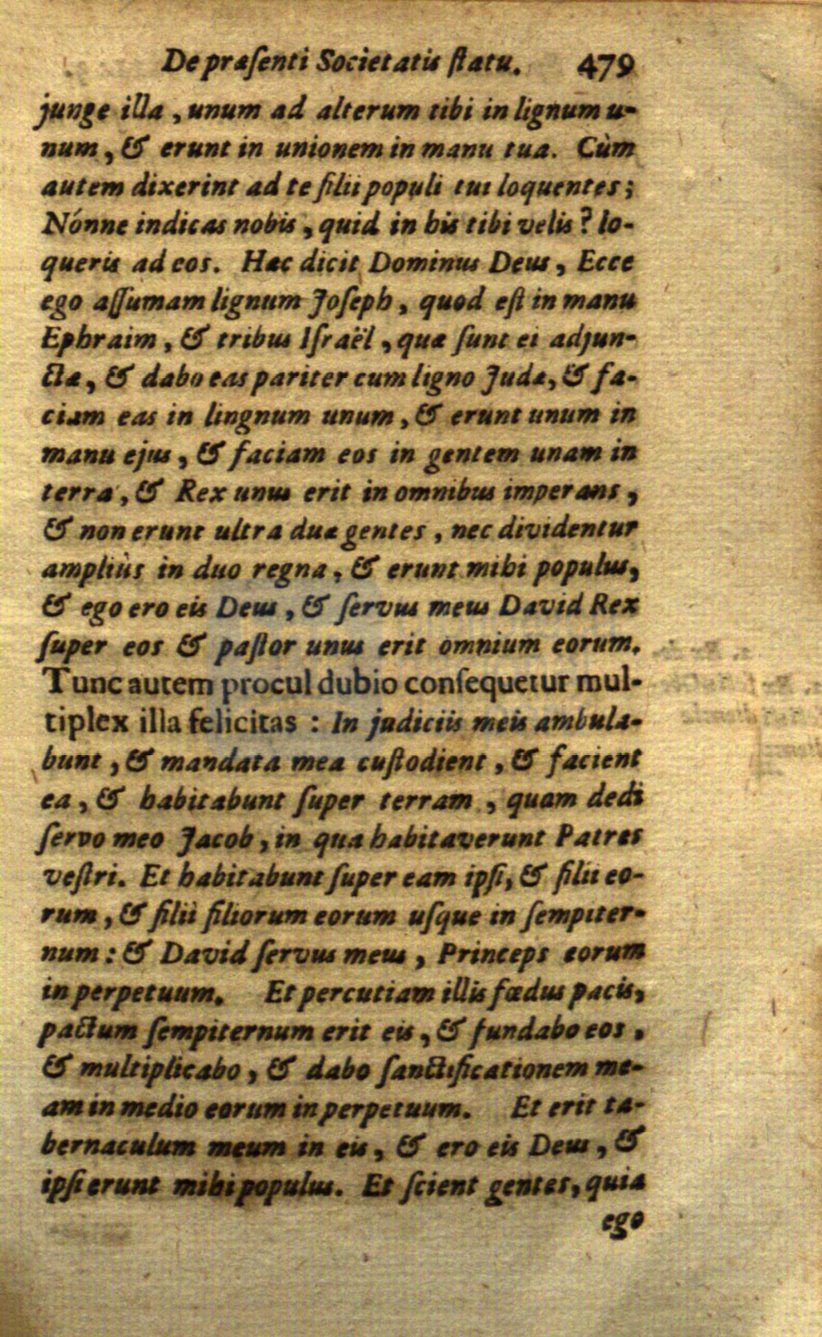 De præſenti Societatis ſtatu. 479
junge illa, unum ad alterum tibi in lignum u-
num, & erunt in unionem in manu tua. Cùm
autem dixerint ad te filii populi tui loquentes;
Nónne indicas nobis, quid in his tibi velis? lo-
queris ad eos. Hæc dicit Dominus Deus, Ecce
ego aſſumam lignum Joſeph, quod eſt in manu
Ephraim, & tribus Iſraël, quæ ſunt ei adjun-
ctæ, & dabo eas pariter cum ligno Juda, & fa-
ciam eas in lingnum unum, & erunt unum in
manu ejus, & faciam eos in gentem unam in
terra, & Rex unus erit in omnibus imperans,
& non erunt ultra duæ gentes, nec dividentur
ampliùs in duo regna, & erunt mihi populus,
& ego ero eis Deus, & ſervus meus David Rex
ſuper eos & paſtor unus erit omnium eorum.
Tunc autem procul dubio conſequetur mul-
tiplex illa felicitas : In judiciis meis ambula-
bunt, & mandata mea cuſtodient, & facient
ea, & habitabunt ſuper terram, quam dedi
ſervo meo Jacob, in qua habitaverunt Patres
veſtri. Et habitabunt ſuper eam ipſi, & filii eo-
rum, & filii filiorum eorum uſque in ſempiter-
num: & David ſervus meus, Princeps eorum
in perpetuum. Et percutiam illis fœdus pacis,
pactum ſempiternum erit eis, & fundabo eos,
& multiplicabo, & dabo ſanctificationem me-
am in medio eorum in perpetuum. Et erit ta-
bernaculum meum in eis, & ero eis Deus, &
ipſi erunt mihi populus. Et ſcient gentes, quia
ego